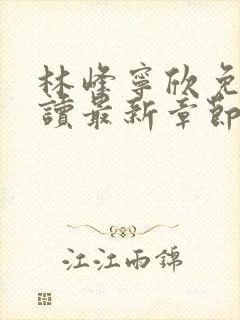 林峰寧欣免
讀最新章節
江江雨錦